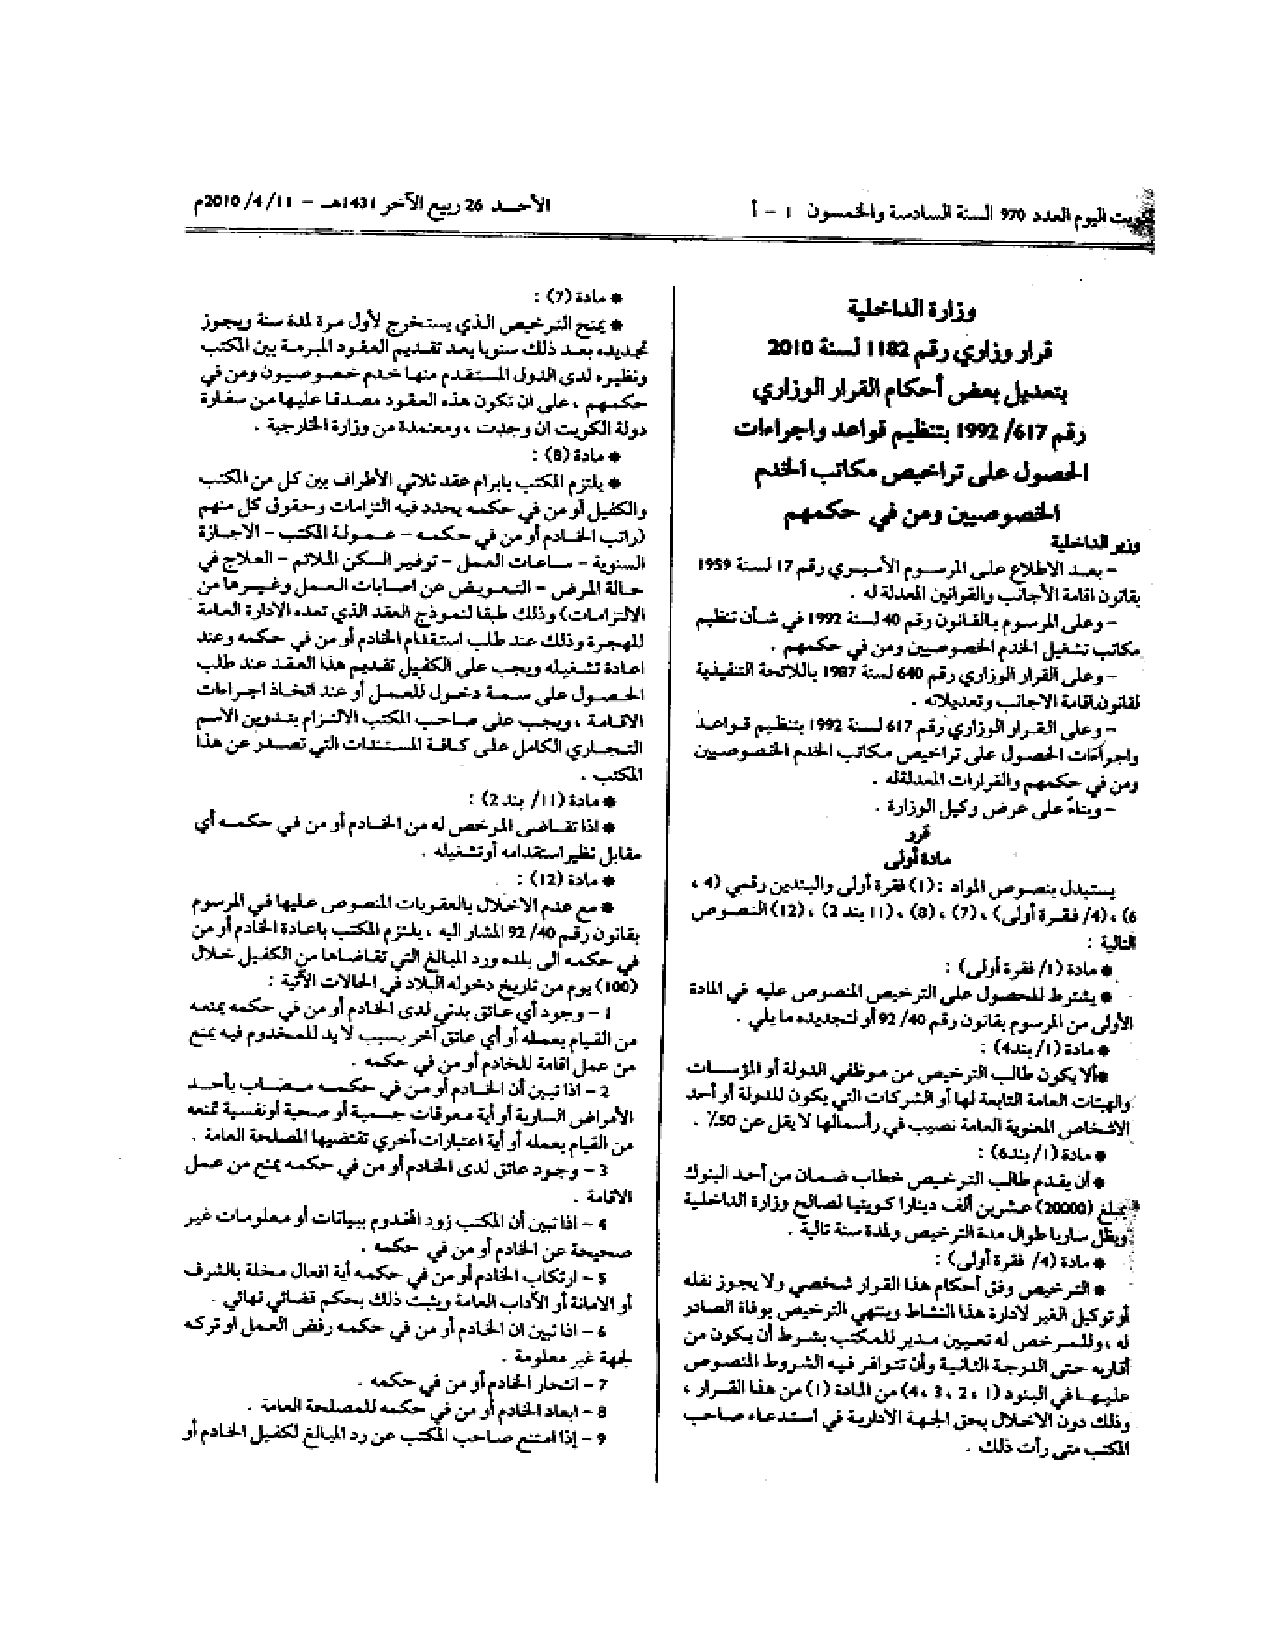 الكويت اليوم العدد 970 السنة السادسة والخمسون ١ - أ
الأحـــد 26 ربيع الآخر 1431هـ - ١١/ 4/ 2010م
وزارة الداخلية
قرار وزاري رقم 1182 لسنة 2010
بتعديل بعض أحكام القرار الوزاري
رقم 617/ 1992 بتنظيم قواعد واجراءات
الحصول على تراخيص مكاتب الخدم
الخصوصيين ومن في حكمهم
وزير الداخلية
- بعـد الاطلاع علـى المرسـوم الأميـري رقم 17 لسنة 1959
بقانون اقامة الأجانب والقوانين المعدلة له .
- وعلى المرسوم بالقـانون رقم 40 لسنة 1992 في شـأن تنظيم
مكاتب تشغيل الخدم الخصوصيين ومن في حكمهم .
- وعلى القرار الوزاري رقم 640 لسنة 1987 باللائحة التنفيذية
لقانون اقامة الاجانب وتعديلاته .
- وعلى القـرار الوزاري رقم 617 لسنة 1992 بتنظيم قواعـد
واجراءات الحصول على تراخيص مكاتب الخدم الخصوصيين
ومن في حكمهم والقرارات المعدلة له .
- وبناءً على عرض وكيل الوزارة .
قرر
مادة أولى
يستبدل بنصوص المواد : (١) فقرة أولى والبندين رقمي (4 ،
6) ، (4/ فقـرة أولى) ، (7) ، (8) ، (١١ بند 2) ، (12) النصوص
التالية :
● مادة (١/ فقرة أولى) :
● يشترط للحصول على الترخيص المنصوص عليه في المادة
الأولى من المرسوم بقانون رقم 40/ 92 أو لتجديده ما يلي .
● مادة (١/ بند4) :
●ألا يكون طالب الترخيص من موظفي الدولة أو المؤسسات
والهيئات العامة التابعة لها أو الشركات التي يكون للدولة أو أحد
الاشخاص المعنوية العامة نصيب في رأسمالها لا يقل عن 50٪ .
● مادة (١/ بند6) :
● أن يقدم طالب الترخيص خطاب ضمان من أحد البنوك
بمبلغ (20000) عشرين ألف دينارا كويتيا لصالح وزارة الداخلية
ويظل ساريا طوال مدة الترخيص ولمدة سنة تالية .
● مادة (4/ فقرة أولى) :
● الترخيص وفق أحكام هذا القرار شخصي ولا يجوز نقله
أو توكيل الغير لادارة هذا النشاط وينتهي الترخيص بوفاة الصادر
له ، وللمـرخص له تعيين مـدير للمكتب بشـرط أن يكون من
أقاربه حتى الدرجة الثانية وأن تتوافر فيه الشروط المنصوص
عليـهـا في البنود (١ ، 2 ، 3 ، 4) من المادة (١) من هذا القـرار ،
وذلك دون الاخلال بحق الجهة الادارية في استدعاء صاحب
المكتب متى رأت ذلك .
● مادة (7) :
● يمنح الترخيص الذي يستخرج لأول مرة لمدة سنة ويجوز
تجديده بعـد ذلك سنويا بعد تقديم العقود المبرمة بين المكتب
ونظيره لدى الدول المستقدم منها خدم خصوصيون ومن في
حكمهم ، على ان تكون هذه العقود مصدقا عليها من سفارة
دولة الكويت ان وجدت ، ومعتمدة من وزارة الخارجية .
● مادة (8) :
● يلتزم المكتب بابرام عقد ثلاثي الأطراف بين كل من المكتب
والكفيل أو من في حكمه يحدد فيه التزامات وحقوق كل منهم
(راتب الخـادم أو من في حكمـه - عـمـولة المكتب - الاجـازة
السنوية - سـاعات العمل - توفير السكن الملائم - العلاج في
حـالة المرض - التعـويض عن اصابات العمل وغيـرها من
الالتزامات) وذلك طبقا لنموذج العقد الذي تعده الادارة العامة
للهجرة وذلك عند طلب استقدام الخادم أو من في حكمه وعند
اعادة تشغيله ويجب على الكفيل تقديم هذا العقد عند طلب
الحصول على سمة دخول للعمل أو عند اتخاذ اجراءات
الاقامة ، ويجب على صاحب المكتب الالتزام بتدوين الاسم
التجـاري الكامل على كافة المستندات التي تصدر عن هذا
المكتب .
● مادة (١١/ بند 2) :
● اذا تقـاضى المرخص له من الخـادم أو من في حكمـه أي
مقابل نظير استقدامه أو تشغيله .
● مادة (12) :
● مع عدم الاخلال بالعقوبات المنصوص عليها في المرسوم
بقانون رقم 40/ 92 المشار اليه ، يلتزم المكتب باعادة الخادم أو من
في حكمه الى بلده ورد المبالغ التي تقاضاها من الكفيل خلال
(100) يوم من تاريخ دخوله البلاد في الحالات الآتية :
١ - وجود أي عائق بدني لدى الخادم أو من في حكمه يمنعه
من القيام بعمله أو أي عائق آخر بسبب لا يد للمخدوم فيه يمنع
من عمل اقامة للخادم أو من في حكمه .
2 - اذا تبين أن الخـادم أو من في حكمـه مـصـاب بأحـد
الأمراض السارية أو أية معوقات جسمية أو صحية أو نفسية تمنعه
من القيام بعمله أو أية اعتبارات أخرى تقتضيها المصلحة العامة .
3 - وجود عائق لدى الخادم أو من في حكمه يمنع من عمل
الاقامة .
4 - اذا تبين أن المكتب زود المخدوم ببيانات أو معلومات غير
صحيحة عن الخادم أو من في حكمه .
5 - ارتكاب الخادم أو من في حكمه أية افعال مخلة بالشرف
أو الامانة أو الآداب العامة ويثبت ذلك بحكم قضائي نهائي .
6 - اذا تبين ان الخادم أو من في حكمه رفض العمل او تركه
لجهة غير معلومة .
7 - انتحار الخادم أو من في حكمه .
8 - ابعاد الخادم أو من في حكمه للمصلحة العامة .
9 - إذا امتنع صاحب المكتب عن رد المبالغ لكفيل الخادم أو